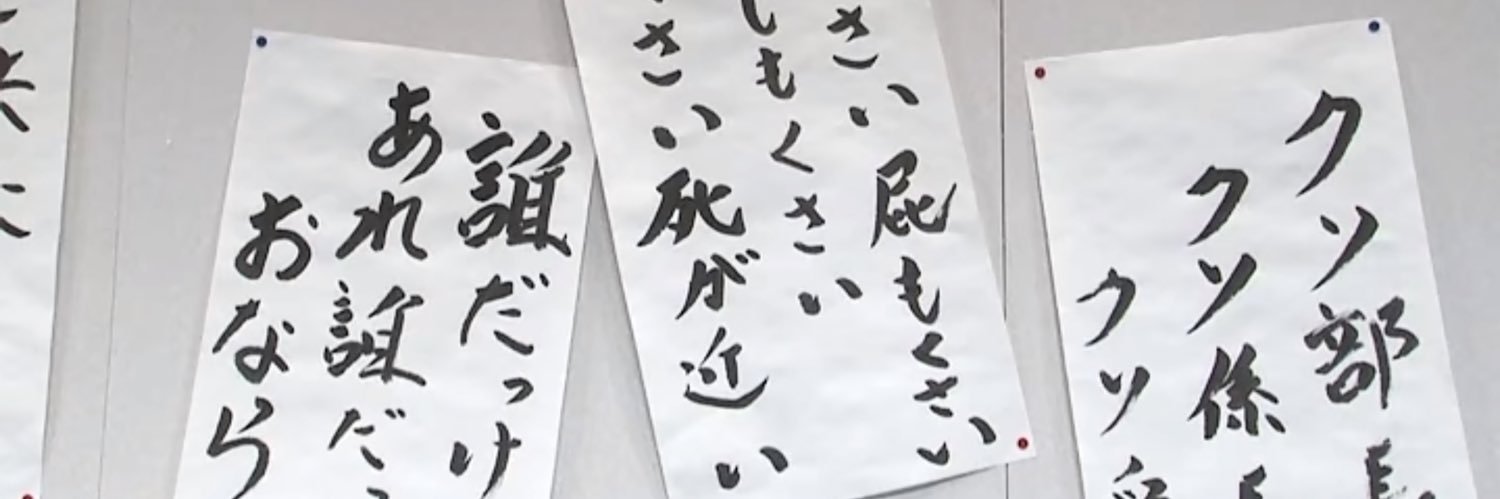 クソ部長
クソ係長
クソ
さい 屁もくさい
しもくさい
さい 死が近い
誰だっけ
あれ誰だっ
おなら